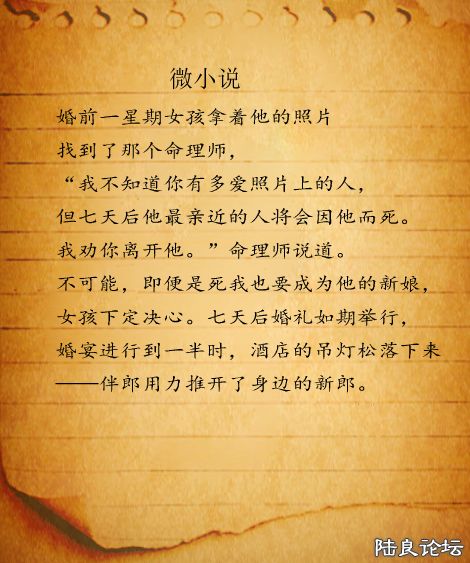 微小说
婚前一星期女孩拿着他的照片
找到了那个命理师，
“我不知道你有多爱照片上的人，
但七天后他最亲近的人将会因他而死。
我劝你离开他。”命理师说道。
不可能，即便是死我也要成为他的新娘，
女孩下定决心。七天后婚礼如期举行，
婚宴进行到一半时，酒店的吊灯松落下来
——伴郎用力推开了身边的新郎。
陆良论坛